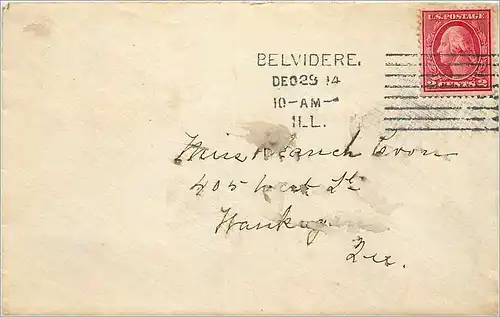 U.S. POSTAGE
2 CENTS 2
BELVIDERE,
DEC 29 14
10-AM-
ILL.
Miss
405 West St
Waukegan
Ill.